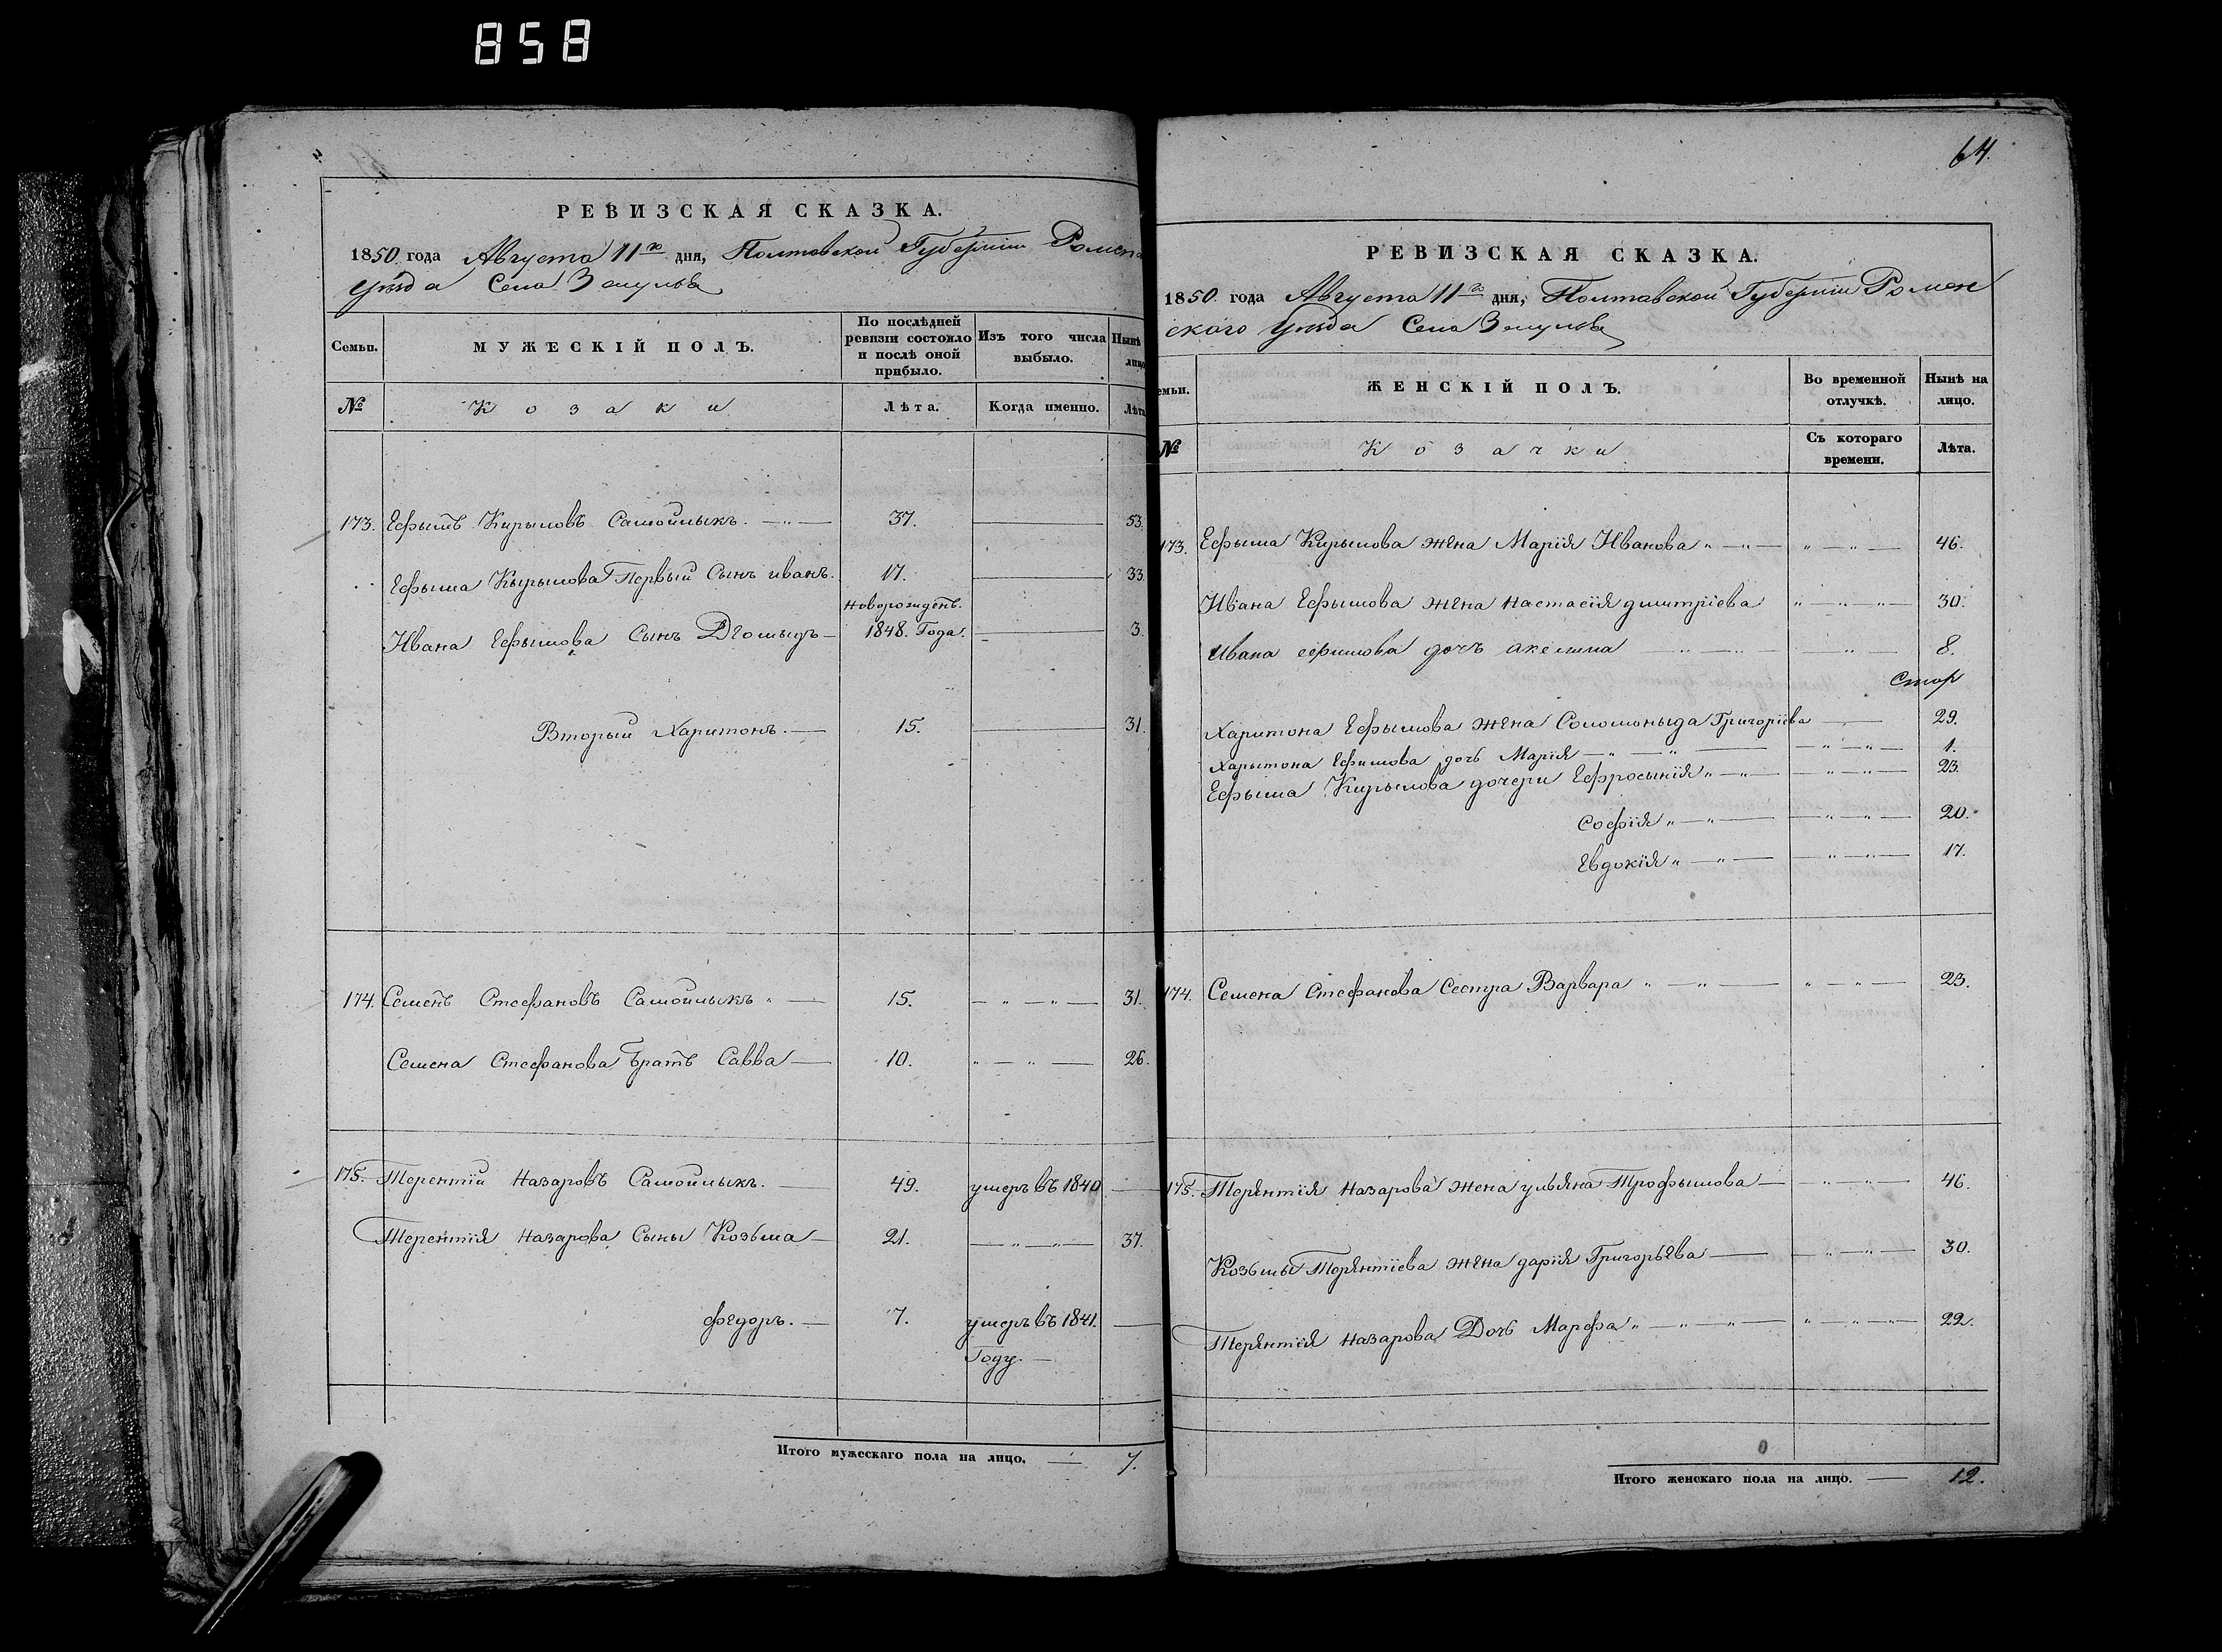 858
РЕВИЗСКАЯ СКАЗКА.
1850 года Августа 11го дня, Полтавской Губернiи Ромен
уѣзда Села
Семьи. МУЖЕСКIЙ ПОЛЪ. По послѣдней ревизiи состояло и послѣ оной прибыло. Изъ того числа выбыло. Нынѣ
№ Козаки Лѣта. Когда именно. Лѣта
173. Ефымъ Кирыловъ Самойлыкъ. 37. 53.
Ефыма Кырылова Первый Сынъ иванъ. 17. 33.
новорожденъ.
Ивана Ефымова Сынъ 1848. Года. 3.
Вторый Харитонъ. 15. 31.
174. Семенъ Стефановъ Самойлыкъ 15. 31.
Семена Стефанова братъ Савва 10. 26.
175. Терентiй Назаровъ Самойлыкъ. 49. умеръ въ 1840
Терентiя Назарова Сыны Козьма 21. 37.
федоръ. 7. умеръ въ 1841.
Году.
Итого мужескаго пола на лицо. 7.
64.
РЕВИЗСКАЯ СКАЗКА.
1850 года Августа 11го дня, Полтавской Губернiи Ромен
ского уѣзда Села
емьи. ЖЕНСКIЙ ПОЛЪ. Во временной отлучкѣ. Нынѣ на лицо.
№ Козачки Съ котораго времени. Лѣта.
173. Ефыма Кирылова жена Марiя Иванова 46.
Ивана Ефымова жена настасiя дмитрiева 30.
Ивана ефимова дочъ акелина 8.
Харитона Ефымова жена Соломоныда Григорiева 29.
Харытона Ефимова дочь Марiя 1.
Ефыма Кирылова дочери Ефросынiя 23.
Софiя 20.
Евдокiя 17.
174. Семена Стефанова Сестра Варвара 23.
175. Терянтiя Назарова жена ульяна Трофымова 46.
Козьмы Терянтiева жена дарiя Григорьева 30.
Терянтiя Назарова Дочь Марфа 22.
Итого женскаго пола на лицо. 12.